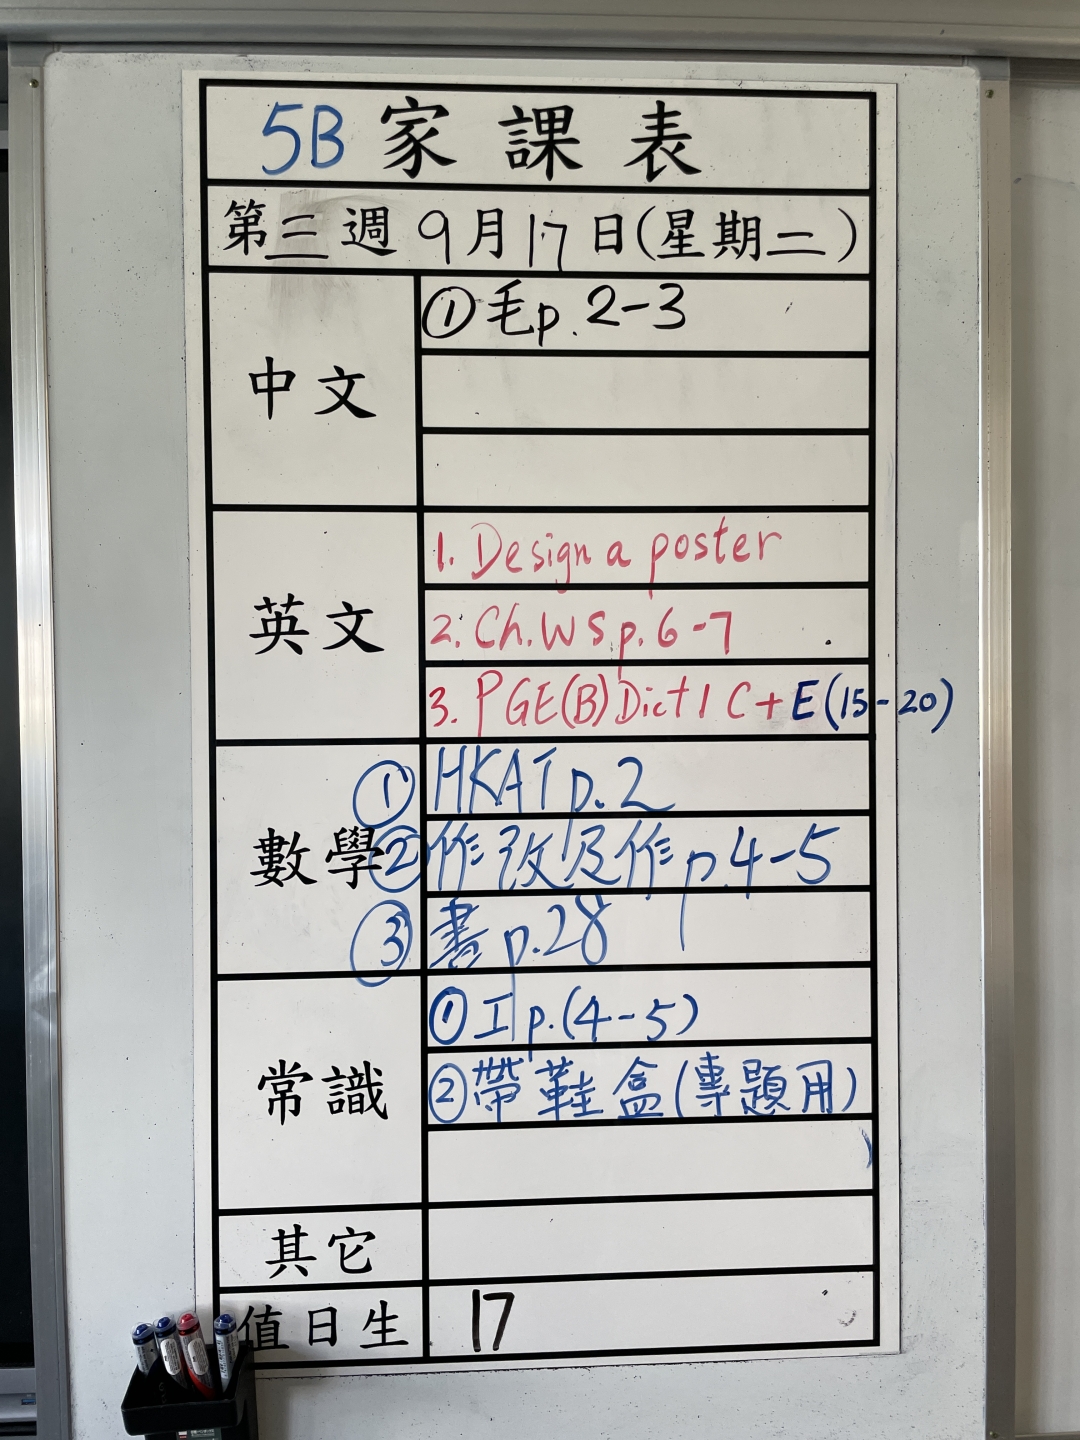 5B 家課表
第三週 9月17日(星期二)
中文
① 毛p.2-3
英文
1. Design a poster
2. Ch.WS p.6-7
3. PGE(B) Dict 1 C + E(15-20)
數學
① HKAT p.2
② 作改及作 p.4-5
③ 書 p.28
常識
① 工 p.(4-5)
② 帶鞋盒(專題用)
其它
值日生 17